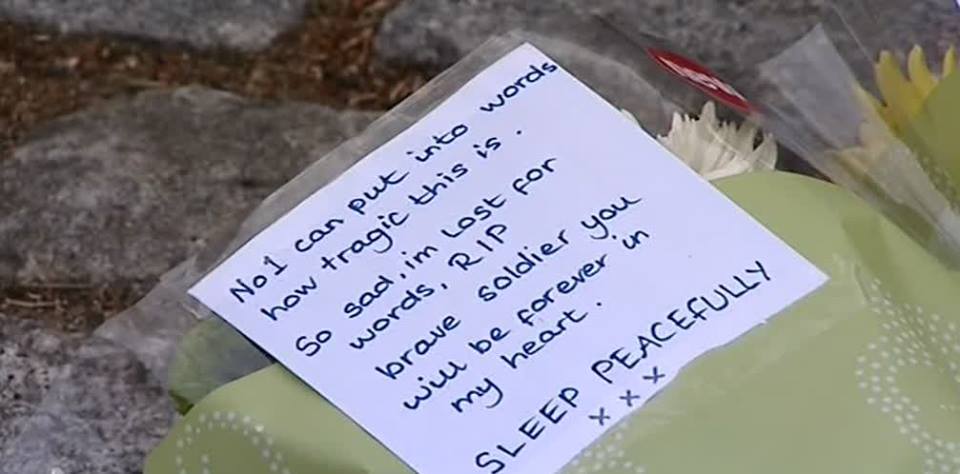 No1 can put into words
how tragic this is.
So sad, im lost for
words, RIP
brave soldier you
will be forever in
my heart.
SLEEP PEACEFULLY
x x x